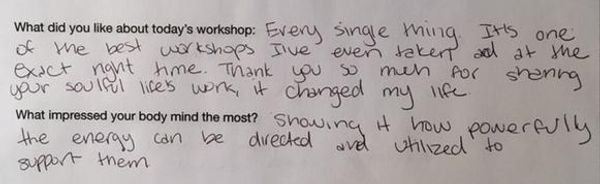 What did you like about today's workshop: Every single thing. It's one
of the best workshops I've even taken, and at the
exact right time. Thank you so much for sharing
your soulful life's work, it changed my life.
What impressed your body mind the most? Showing it how powerfully
the energy can be directed and utilized to
support them